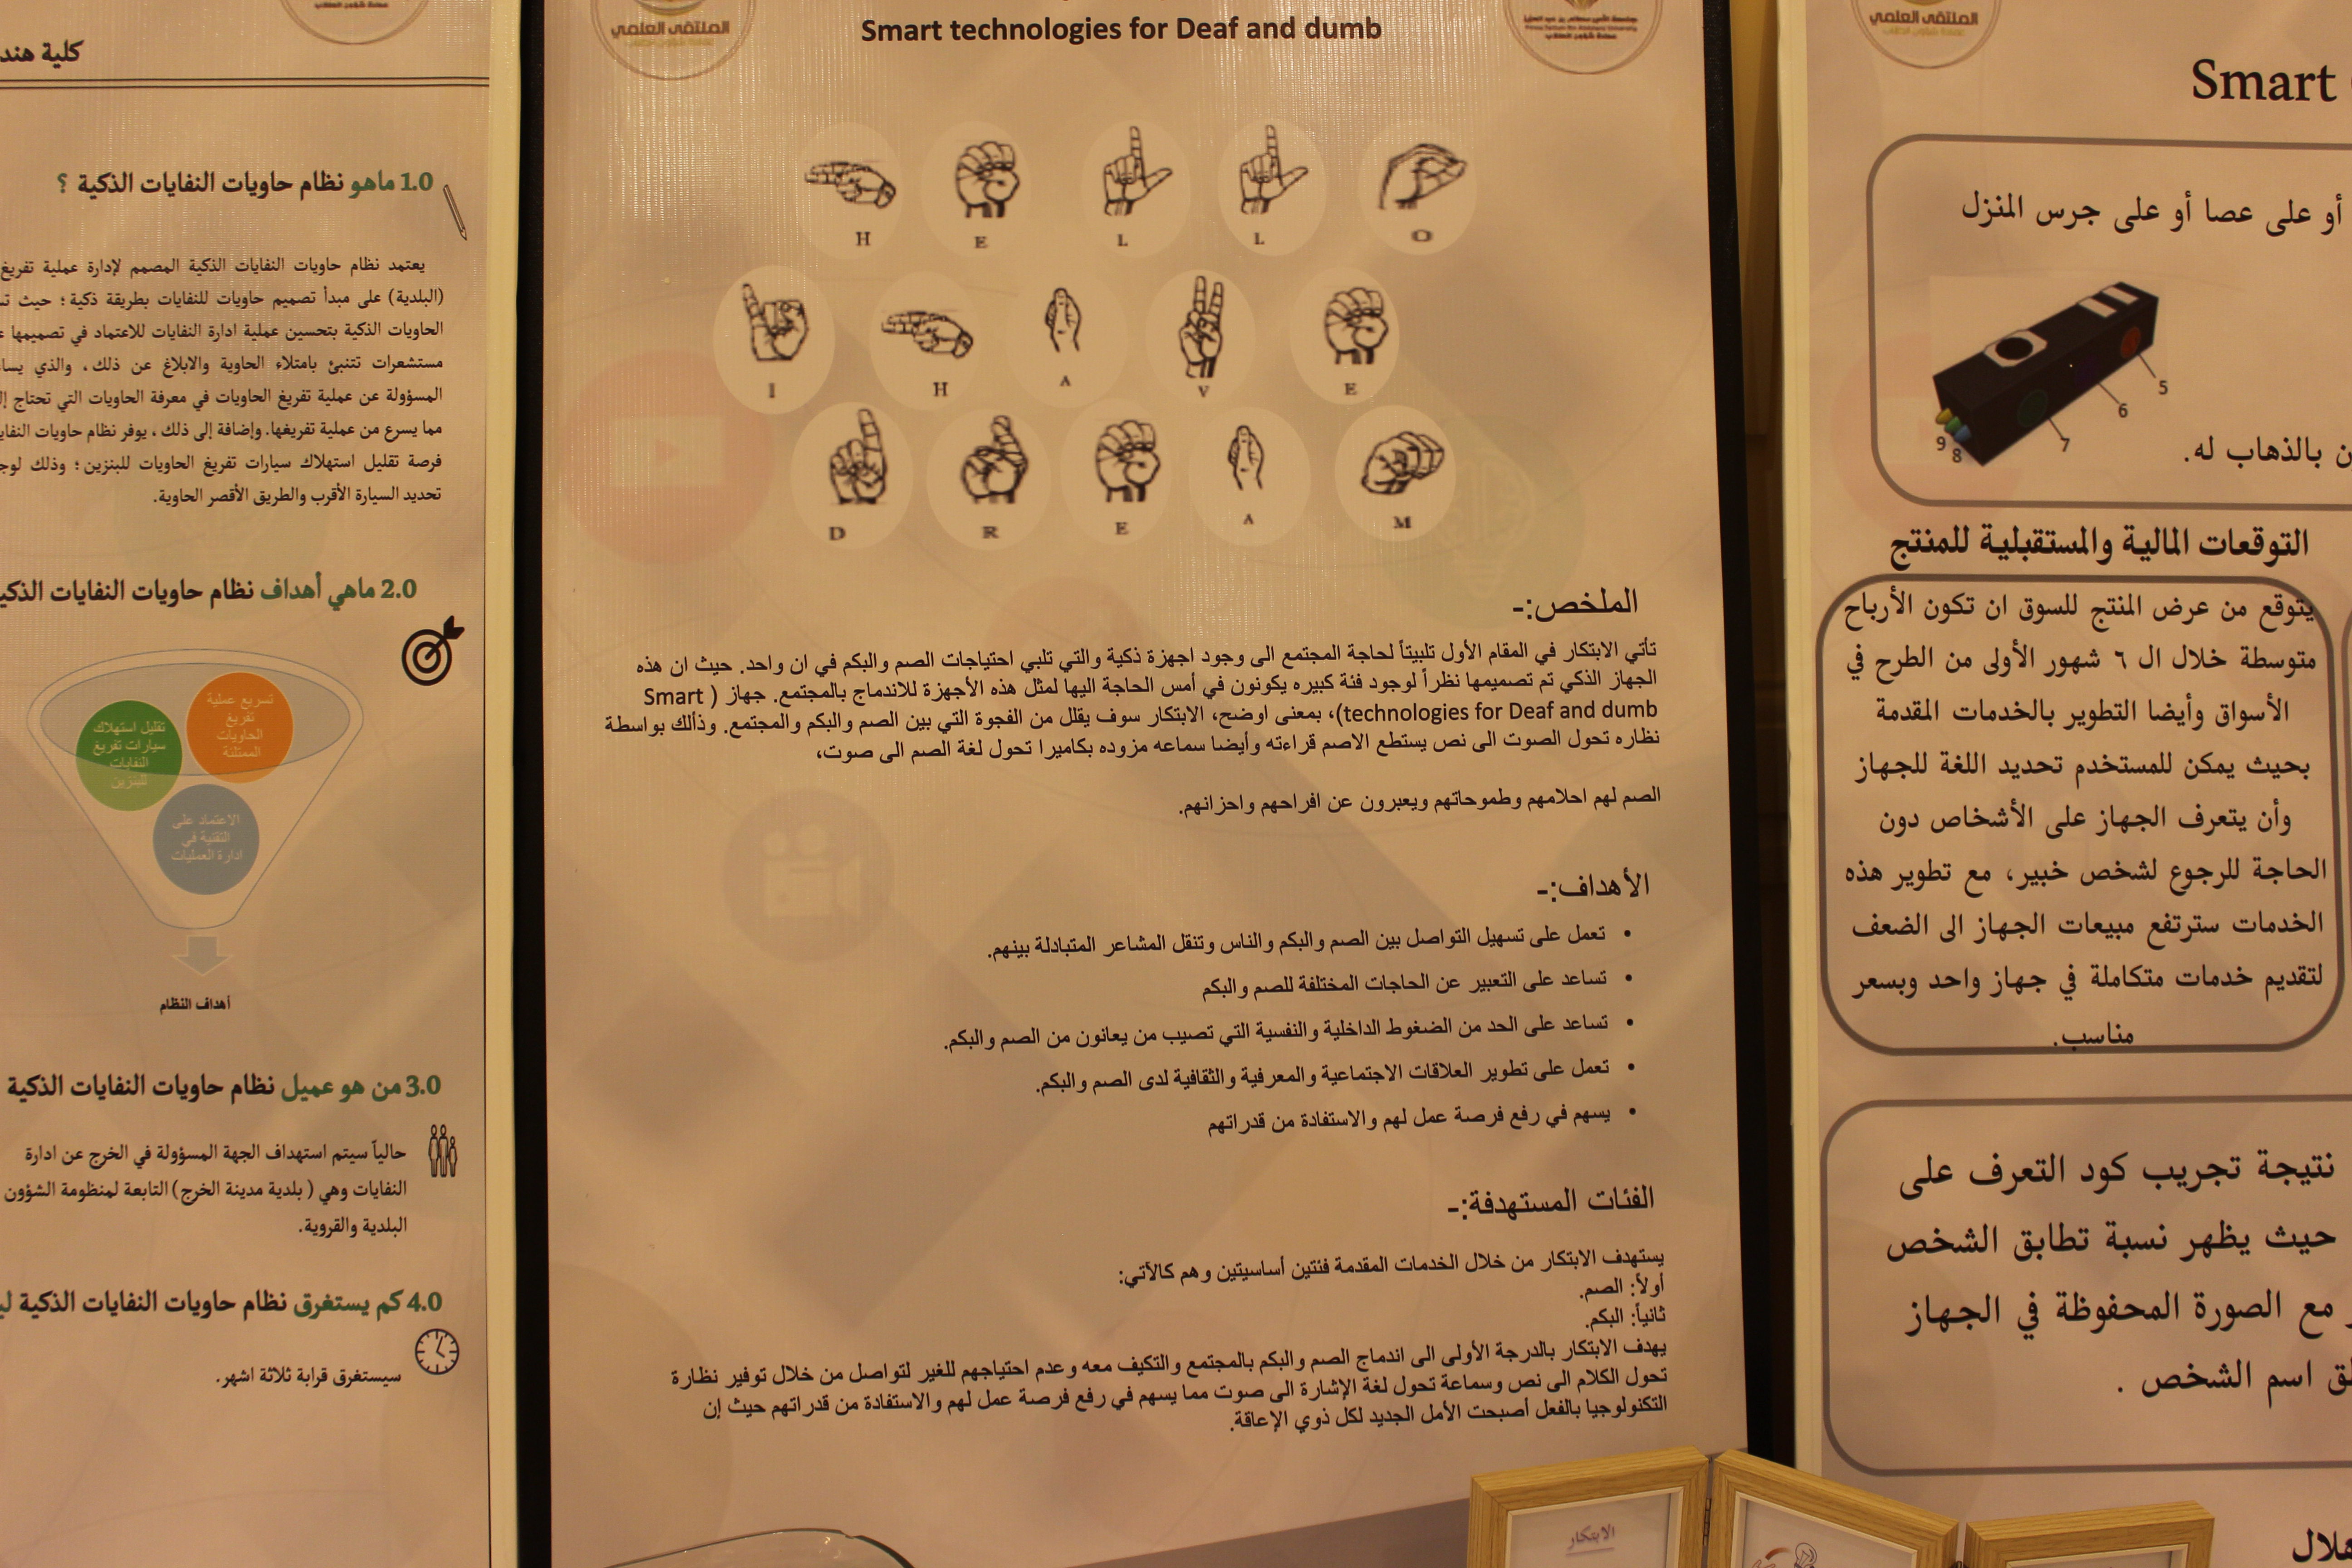 كلية
1.0 ماهو نظام حاويات النفايات الذكية ؟
يعتمد نظام حاويات النفايات الذكية المصمم لإدارة عملية تفريغ
(البلدية) على مبدأ تصميم حاويات للنفايات بطريقة ذكية ؛ حيث
الحاويات الذكية بتحسين عملية ادارة النفايات للاعتماد في تصميمها
مستشعرات تتنبئ بامتلاء الحاوية والابلاغ عن ذلك، والذي
المسؤولة عن عملية تفريغ الحاويات في معرفة الحاويات التي تحتاج
مما يسرع من عملية تفريغها. وإضافة إلى ذلك ، يوفر نظام حاويات
فرصة تقليل استهلاك سيارات تفريغ الحاويات للبنزين ؛ وذلك
تحديد السيارة الأقرب والطريق الأقصر الحاوية.
2.0 ماهي أهداف نظام حاويات النفايات
تسريع عملية
تفريغ
الحاويات
الممتلئة
تقليل استهلاك
سيارات تفريغ
النفايات
للبنزين
الاعتماد على
التقنية في
ادارة العمليات
أهداف النظام
3.0 من هو عميل نظام حاويات النفايات الذكية
حالياً سيتم استهداف الجهة المسؤولة في الخرج عن ادارة
النفايات وهي ( بلدية مدينة الخرج) التابعة لمنظومة الشؤون
البلدية والقروية.
4.0 كم يستغرق نظام حاويات النفايات الذكية
سيستغرق قرابة ثلاثة اشهر.
الملتقى العلمي
Smart technologies for Deaf and dumb
H E L L O
I H A V E
D R E A M
الملخص:-
تأتي الابتكار في المقام الأول تلبيتاً لحاجة المجتمع الى وجود اجهزة ذكية والتي تلبي احتياجات الصم والبكم في ان واحد. حيث ان هذه
الجهاز الذكي تم تصميمها نظراً لوجود فئة كبيره يكونون في أمس الحاجة اليها لمثل هذه الأجهزة للاندماج بالمجتمع. جهاز ( Smart
technologies for Deaf and dumb)، بمعنى اوضح، الابتكار سوف يقلل من الفجوة التي بين الصم والبكم والمجتمع. وذألك بواسطة
نظاره تحول الصوت الى نص يستطع الاصم قراءته وأيضا سماعه مزوده بكاميرا تحول لغة الصم الى صوت،
الصم لهم احلامهم وطموحاتهم ويعبرون عن افراحهم واحزانهم.
الأهداف:-
• تعمل على تسهيل التواصل بين الصم والبكم والناس وتنقل المشاعر المتبادلة بينهم.
• تساعد على التعبير عن الحاجات المختلفة للصم والبكم
• تساعد على الحد من الضغوط الداخلية والنفسية التي تصيب من يعانون من الصم والبكم.
• تعمل على تطوير العلاقات الاجتماعية والمعرفية والثقافية لدى الصم والبكم.
• يسهم في رفع فرصة عمل لهم والاستفادة من قدراتهم
الفئات المستهدفة:-
يستهدف الابتكار من خلال الخدمات المقدمة فئتين أساسيتين وهم كالآتي:
أولاً: الصم.
ثانياً: البكم.
يهدف الابتكار بالدرجة الأولى الى اندماج الصم والبكم بالمجتمع والتكيف معه وعدم احتياجهم للغير لتواصل من خلال توفير نظارة
تحول الكلام الى نص وسماعة تحول لغة الإشارة الى صوت مما يسهم في رفع فرصة عمل لهم والاستفادة من قدراتهم حيث إن
التكنولوجيا بالفعل أصبحت الأمل الجديد لكل ذوي الإعاقة.
الابتكار
الملتقى العلمي
Smart
أو على عصا أو على جرس المنزل
5
6
7
8
9
بالذهاب له.
التوقعات المالية والمستقبلية للمنتج
يتوقع من عرض المنتج للسوق ان تكون الأرباح
متوسطة خلال ال ٦ شهور الأولى من الطرح في
الأسواق وأيضا التطوير بالخدمات المقدمة
بحيث يمكن للمستخدم تحديد اللغة للجهاز
وأن يتعرف الجهاز على الأشخاص دون
الحاجة للرجوع لشخص خبير، مع تطوير هذه
الخدمات سترتفع مبيعات الجهاز الى الضعف
لتقديم خدمات متكاملة في جهاز واحد وبسعر
مناسب.
نتيجة تجريب كود التعرف على
حيث يظهر نسبة تطابق الشخص
مع الصورة المحفوظة في الجهاز
اسم الشخص .